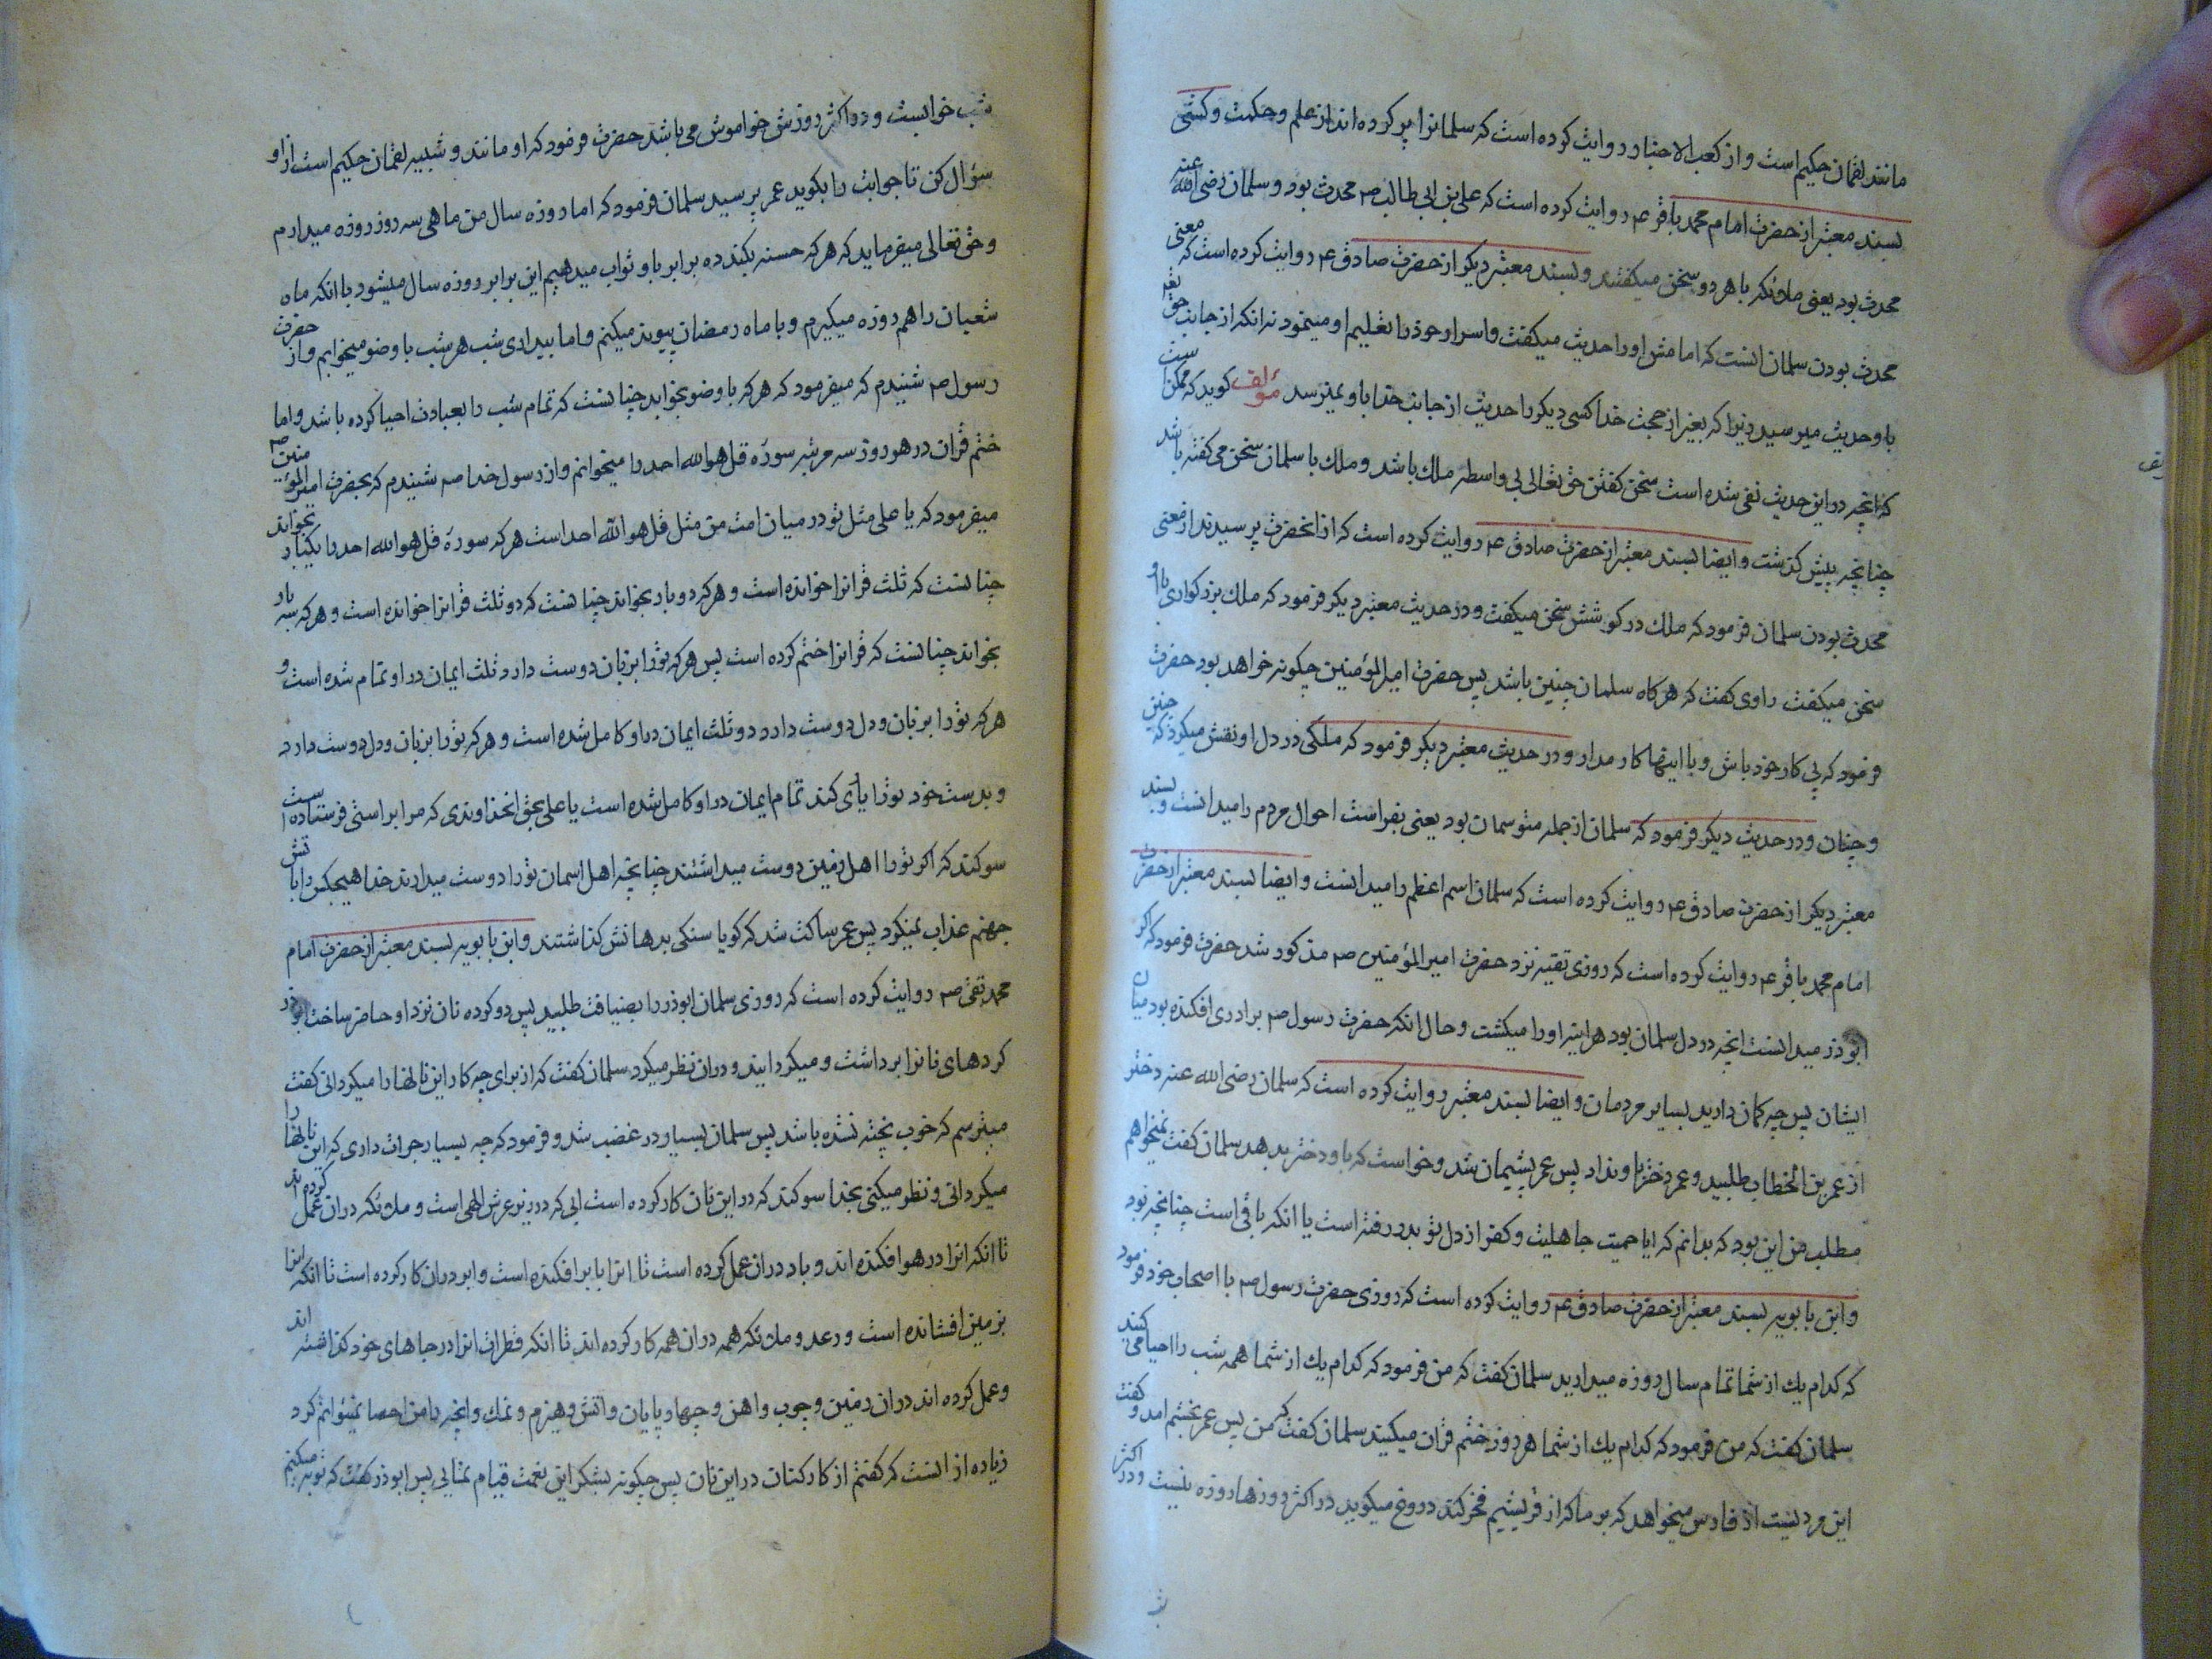 مانند لقمان حکیم است و از کعب الاحبار روایت کرده است که سلمانرا پر کرده اند از علم و حکمت و کشی
بسند معتبر از حضرت امام محمد باقر ع م روایت کرده است که علی بن ابی طالب ص م محدث بود و سلمان رضی الله عنه
محدث بود یعنی ملائکه با هر دو سخن میکفتند و بسند معتبر دیکر از حضرت صادق ع م روایت کرده است که معنی
محدث بودن سلمان انست که امامش او را حدیث میکفت و اسرار خود را تعلیم او مینمود نه انکه از جانب حق تعم
باو حدیث میرسید زیرا که بغیر از حجت خدا کسی دیکر را حدیث از جانب خدا باو نمیرسد مؤلف کوید که ممکن است
که انچه در این حدیث نفی شده است سخن کفتن حق تعالی بی واسطه ملك باشد و ملك با سلمان سخن می کفته باشد
چنانچه پیش کذشت و ایضا بسند معتبر از حضرت صادق ع م روایت کرده است که از انحضرت پرسیدند از معنی
محدث بودن سلمان فرمود که ملك در کوشش سخن میکفت و در حدیث معتبر دیکر فرمود که ملك بزرکواری با او
سخن میکفت راوی کفت که هرکاه سلمان چنین باشد پس حضرت امیرالمؤمنین چکونه خواهد بود حضرت
فرمود که پی کار خود باش و با اینها کار مدار و در حدیث معتبر دیکر فرمود که ملکی در دل او نقش میکرد که چنین
و چنان و در حدیث دیکر فرمود که سلمان از جمله متوسمان بود یعنی بفراست احوال مردم را میدانست و بسند
معتبر دیکر از حضرت صادق ع م روایت کرده است که سلمان اسم اعظم را میدانست و ایضا بسند معتبر از حضرت
امام محمد باقر ع م روایت کرده است که روزی تقیه نزد حضرت امیرالمؤمنین ص م مذکور شد حضرت فرمود که اکر
ابوذر میدانست انچه در دل سلمان بود هراینه او را میکشت و حال انکه حضرت رسول ص م برادری افکنده بود میان
ایشان پس چه کمان دارید بسایر مردمان و ایضا بسند معتبر روایت کرده است که سلمان رضی الله عنه دختر
از عمر بن الخطاب طلبید و عمر دختر باو نداد پس عمر پشیمان شد و خواست که باو دختر بدهد سلمان کفت نمیخواهم
مطلب من این بود که بدانم که ایا حمیت جاهلیت و کفر از دل تو بدر رفته است یا انکه باقی است چنانچه بود
و ابن بابویه بسند معتبر از حضرت صادق ع م روایت کرده است که روزی حضرت رسول ص م با اصحاب خود فرمود
که کدام یك از شما تمام سال روزه میدارید سلمان کفت که من فرمود که کدام یك از شما همه شب را احیا می کنید
سلمان کفت که من فرمود که کدام یك از شما هر روز ختم قران میکنید سلمان کفت که من پس عمر بخشم امد و کفت
این مردیست از فارس میخواهد که بر ما که از قریشیم فخر کند دروغ میکوید در اکثر روزها روزه نیست و در اکثر
شب خوابست و در اکثر روزش خواموش می باشد حضرت فرمود که او مانند و شبیه لقمان حکیم است از او
سؤال کن تا جوابت را بکوید عمر پرسید سلمان فرمود که اما روزه سال من ماهی سه روز روزه میدارم
و حق تعالی میفرماید که هرکه حسنه بکند ده برابر باو ثواب میدهیم این برابر روزه سال میشود با انکه ماه
شعبان را هم روزه میکیرم و با ماه رمضان پیوند میکنم و اما بیداری شب هر شب با وضو میخوابم و از حضرت
رسول ص م شنیدم که میفرمود که هرکه با وضو بخوابد چنانست که تمام شب را بعبادت احیا کرده باشد و اما
ختم قران در هر روز سه مرتبه سوره قل هو الله احد را میخوانم و از رسول خدا ص م شنیدم که بحضرت امیرالمؤمنین ص م
میفرمود که یا علی مثل تو در میان امت من مثل قل هو الله احد است هرکه سوره قل هو الله احد را یکبار بخواند
چنانست که ثلث قرانرا خوانده است و هرکه دو بار بخواند چنانست که دو ثلث قرانرا خوانده است و هرکه سه بار
بخواند چنانست که قرانرا ختم کرده است پس هرکه تو را بزبان دوست دارد ثلث ایمان در او تمام شده است و
هرکه تو را بزبان و دل دوست دارد دو ثلث ایمان در او کامل شده است و هرکه تو را بزبان و دل دوست دارد
و بدست خود تو را یاری کند تمام ایمان در او کامل شده است یا علی بحق انخداوندی که مرا براستی فرستاده است
سوکند که اکر تو را اهل زمین دوست میداشتند چنانچه اهل اسمان تو را دوست میدارند خدا هیچکس را باتش
جهنم عذاب نمیکرد پس عمر ساکت شد که کویا سنکی بدهانش کذاشتند و ابن بابویه بسند معتبر از حضرت امام
محمد تقی ص م روایت کرده است که روزی سلمان ابوذر را بضیافت طلبید پس دو کرده نان نزد او حاضر ساخت ابوذر
کردهای نانرا برداشت و میکردانید و در ان نظر میکرد سلمان کفت که از برای چه کار این نانها را میکردانی کفت
میترسم که خوب پخته نشده باشد پس سلمان بسیار در غضب شد و فرمود که چه بسیار جرات داری که این نانها را
میکردانی و نظر میکنی بخدا سوکند که در این نان کار کرده است ابی که در زیر عرش الهی است و ملائکه در ان عمل کرده اند
تا انکه انرا در هوا افکنده اند و باد در ان عمل کرده است تا انرا بابر افکنده است و ابر در ان کار کرده است تا انکه انرا
بزمین افشانده است و رعد و ملائکه همه در ان همه کار کرده اند تا انکه قطرات انرا در جاهای خود کذاشته اند
و عمل کرده اند در ان زمین و چوب و اهن و چهارپایان و اتش و هیزم و نمك و انچه را من احصا نمیتوانم کرد
زیاده از انست که کفتم از کارکنان در این نان پس چکونه بشکر این نعمت قیام نمائی پس ابوذر کفت که توبه میکنم